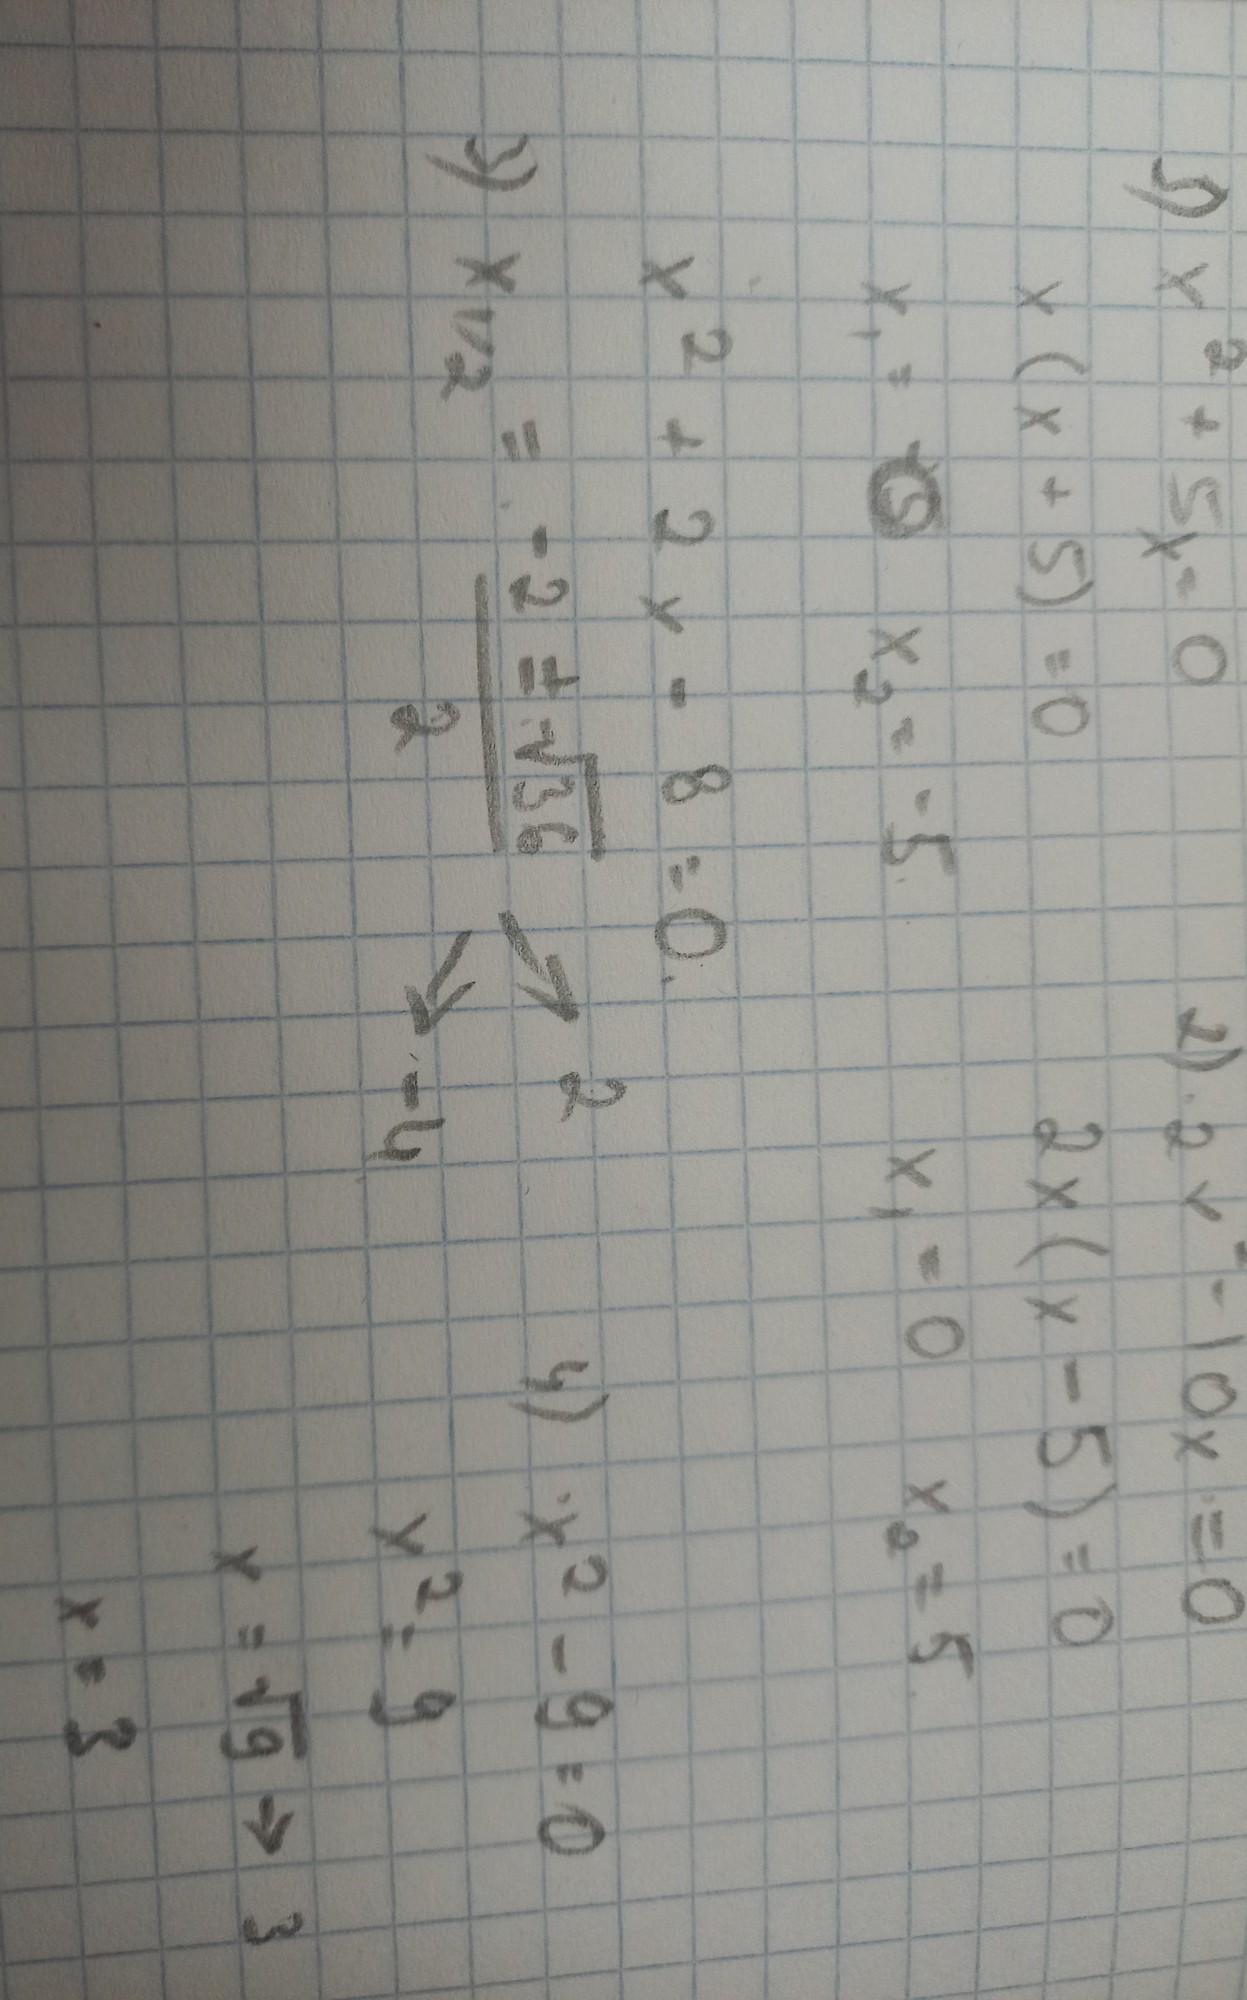 1) x² + 5x = 0
x (x + 5) = 0
x₁ = x₂ = -5
2) 2x² - 10x = 0
2x (x - 5) = 0
x₁ = 0 x₂ = 5
x² + 2x - 8 = 0
3) x₁/₂ = (-2 ± √36) / 2
→ 2
→ -4
4) x² - 9 = 0
x² = 9
x = √9 → 3
x = 3